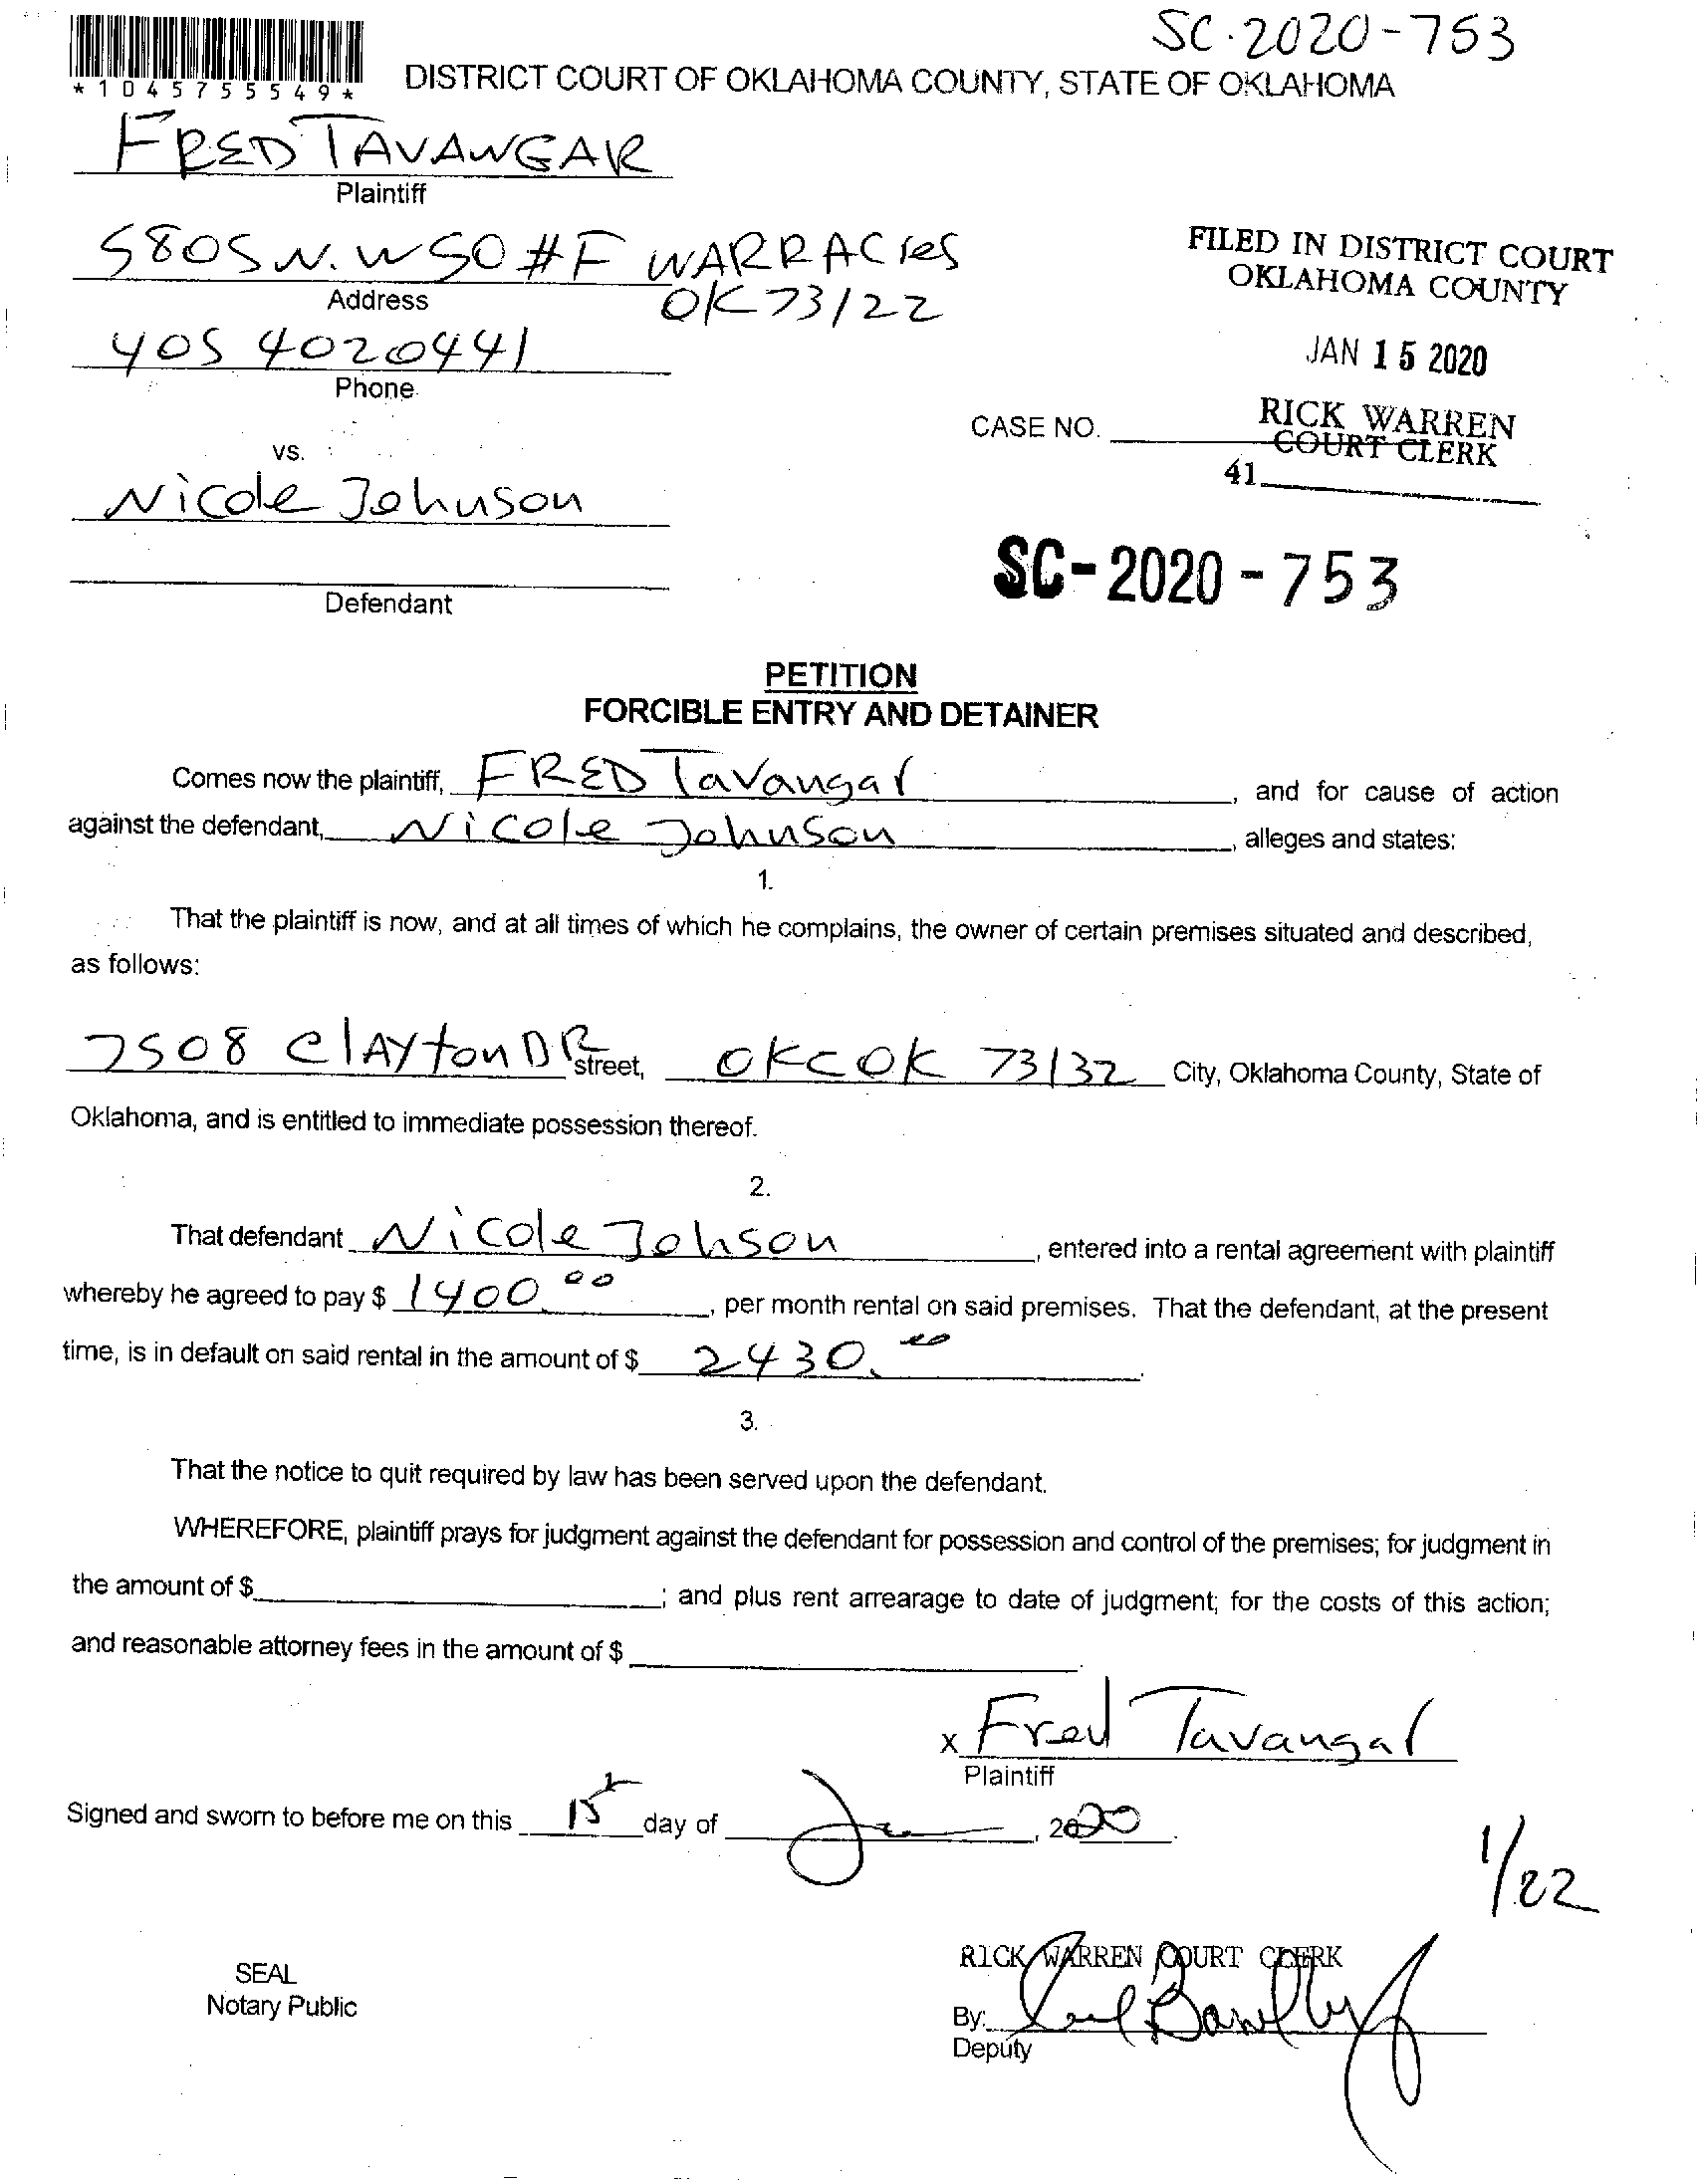 SC-2020-753
*1045755549*
DISTRICT COURT OF OKLAHOMA COUNTY, STATE OF OKLAHOMA
FRED TAVANGAR
Plaintiff
5805 N.W 50 #F WARRACres
Address
OK 73122
405 4020441
Phone
FILED IN DISTRICT COURT
OKLAHOMA COUNTY
JAN 15 2020
RICK WARREN
COURT CLERK
41
CASE NO.
vs.
Nicole Johnson
Defendant
SC-2020-753
PETITION
FORCIBLE ENTRY AND DETAINER
Comes now the plaintiff, FRED Tavangar, and for cause of action
against the defendant, Nicole Johnson, alleges and states:
1.
That the plaintiff is now, and at all times of which he complains, the owner of certain premises situated and described,
as follows:
7508 ClAYton DR street, OKC OK 73132 City, Oklahoma County, State of
Oklahoma, and is entitled to immediate possession thereof.
2.
That defendant Nicole Johson, entered into a rental agreement with plaintiff
whereby he agreed to pay $ 1400.00, per month rental on said premises. That the defendant, at the present
time, is in default on said rental in the amount of $ 2430.00.
3.
That the notice to quit required by law has been served upon the defendant.
WHEREFORE, plaintiff prays for judgment against the defendant for possession and control of the premises; for judgment in
the amount of $ ; and plus rent arrearage to date of judgment; for the costs of this action;
and reasonable attorney fees in the amount of $ .
x Fred Tavangar
Plaintiff
Signed and sworn to before me on this 15 day of Jan, 2020.
1/22
RICK WARREN COURT CLERK
SEAL
Notary Public
By:
Deputy